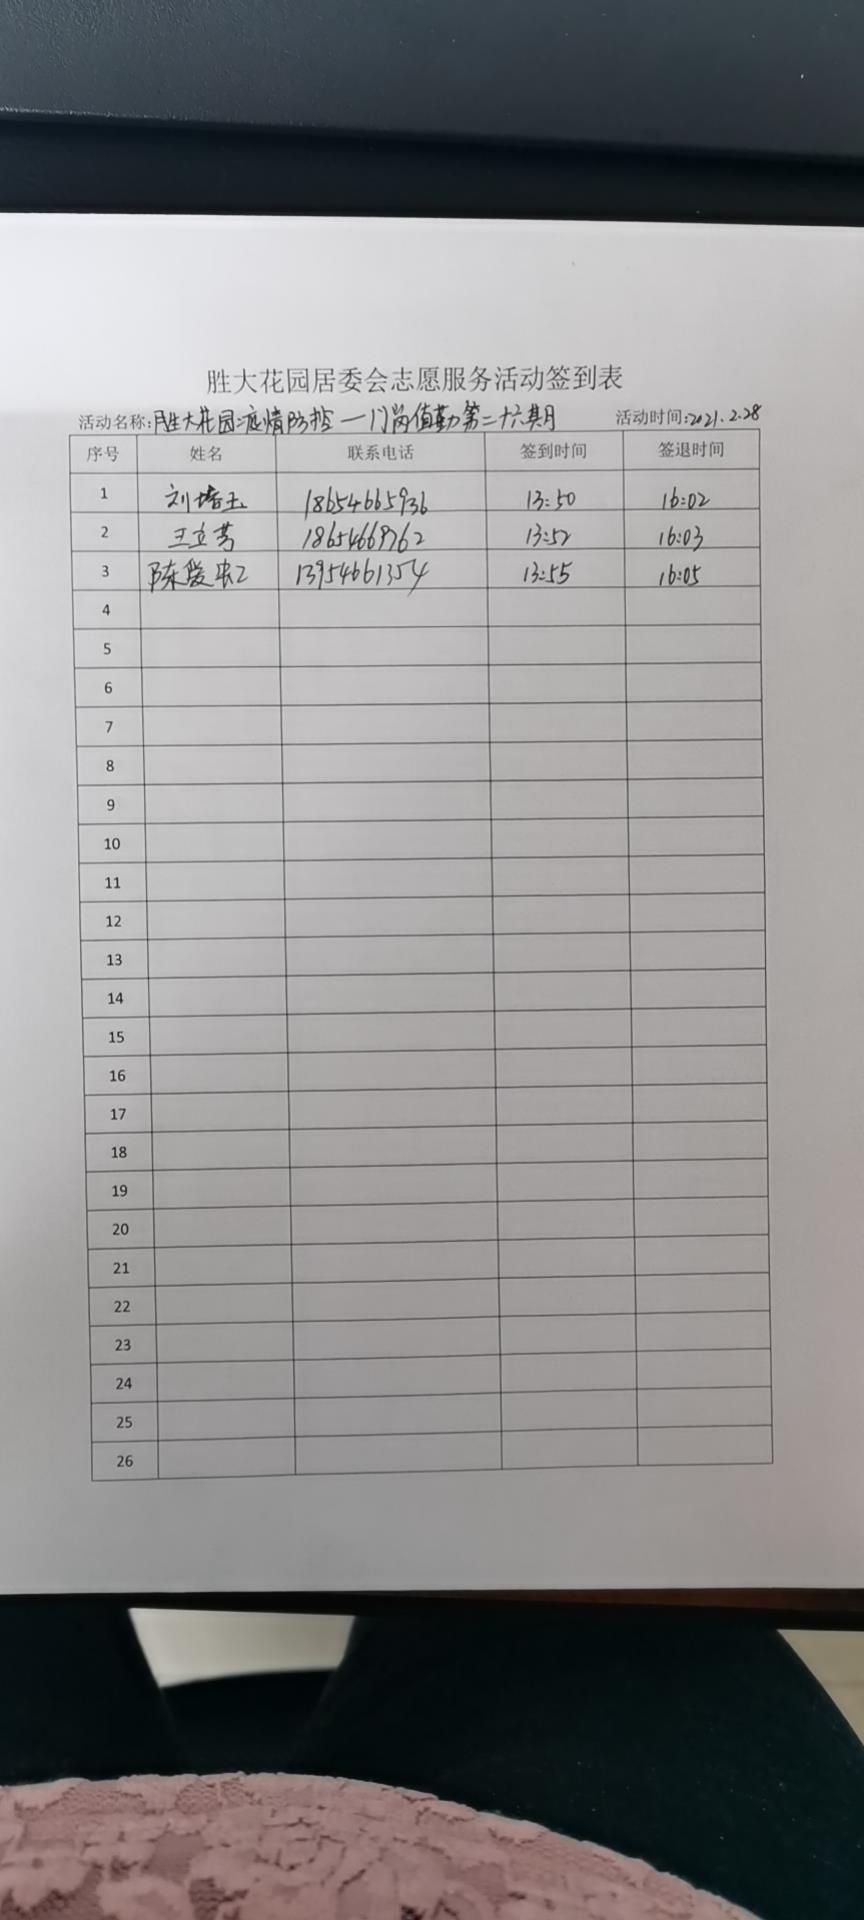 胜大花园居委会志愿服务活动签到表
活动名称:胜大花园疫情防控一门岗值勤第二十六期 活动时间:2021.2.28
序号 姓名 联系电话 签到时间 签退时间
1 刘培玉 18654665936 13:50 16:02
2 王立芳 13:52 16:03
3 陈爱 13954661354 13:55 16:05
4
5
6
7
8
9
10
11
12
13
14
15
16
17
18
19
20
21
22
23
24
25
26